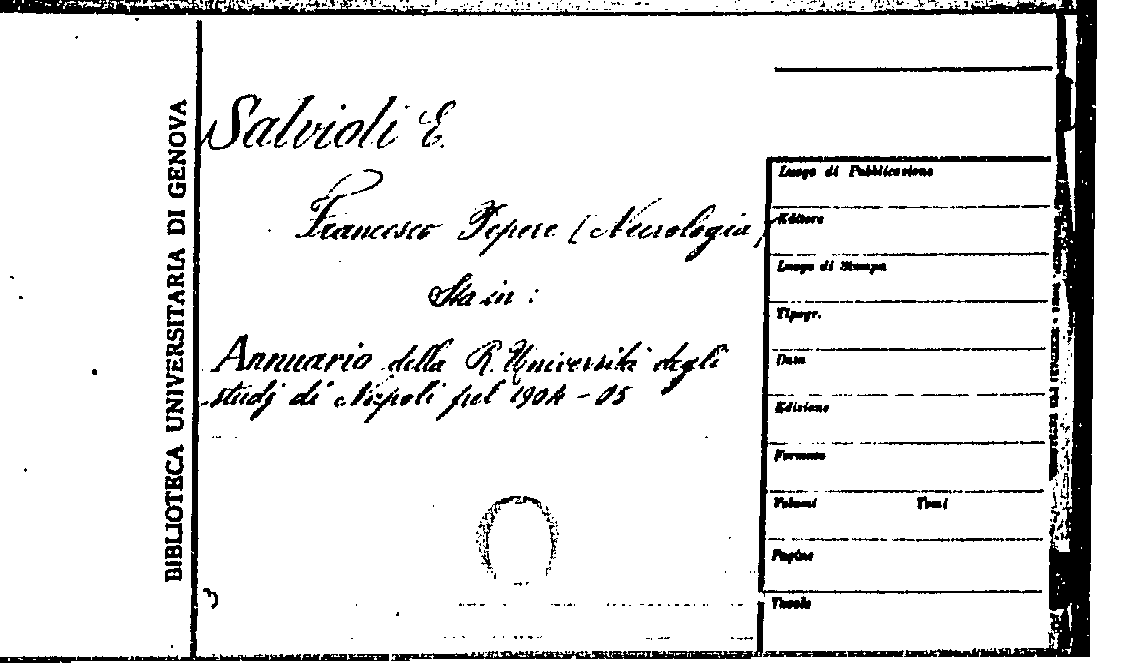 BIBLIOTECA UNIVERSITARIA DI GENOVA
Salvioli E.
Francesco Pepere (Necrologia)
Sta in :
Annuario della R. Università degli
studj di Napoli pel 1904-05
Luogo di Pubblicazione
Editore
Luogo di Stampa
Tipogr.
Data
Edizione
Formato
Volumi Tomi
Pagine
Tavole